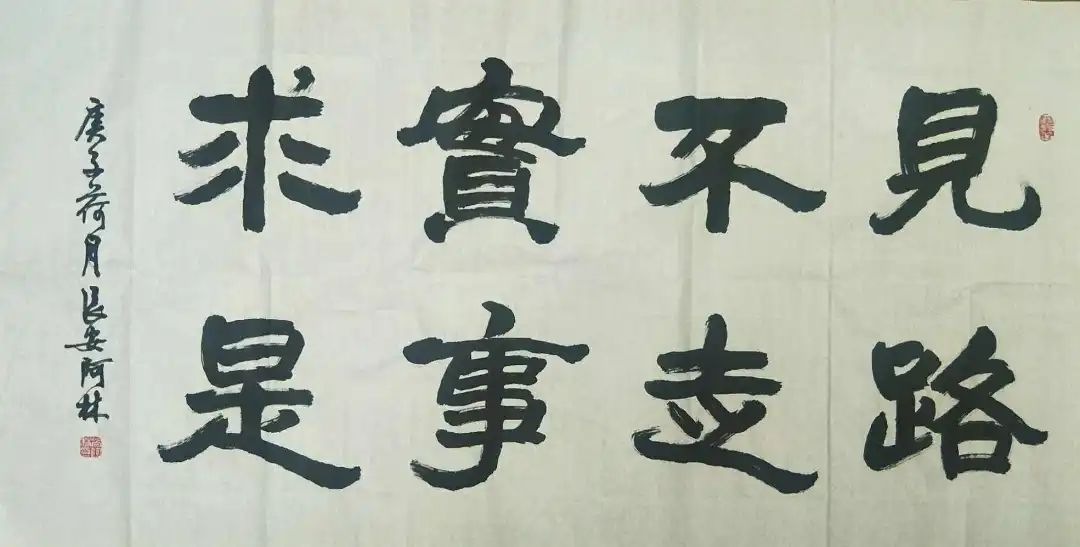 見路
不走
實事
求是
庚子荷月長安阿林